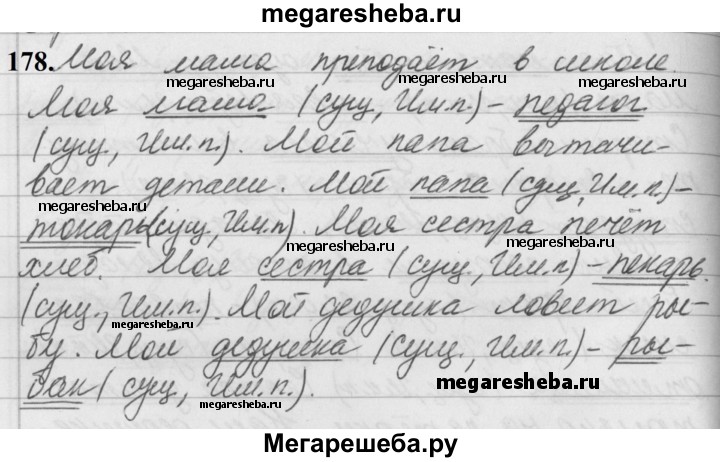 megaresheba.ru
178. Моя мама преподаёт в школе.
megaresheba.ru megaresheba.ru
Моя мама (сущ, Им.п.) – педагог
megaresheba.ru
(сущ, Им.п.). Мой папа вытачи-
вает детали. Мой папа (сущ, Им.п.) –
megaresheba.ru
токарь (сущ, Им.п). Моя сестра печёт
megaresheba.ru megaresheba.ru
хлеб. Моя сестра (сущ., Им.п) – пекарь.
(сущ., Им.п.). Мой дедушка ловит ры-
megaresheba.ru
бу. Мой дедушка (сущ., Им.п.) – ры-
megaresheba.ru
бак (сущ, Им.п.).
megaresheba.ru
Мегарешеба.ру